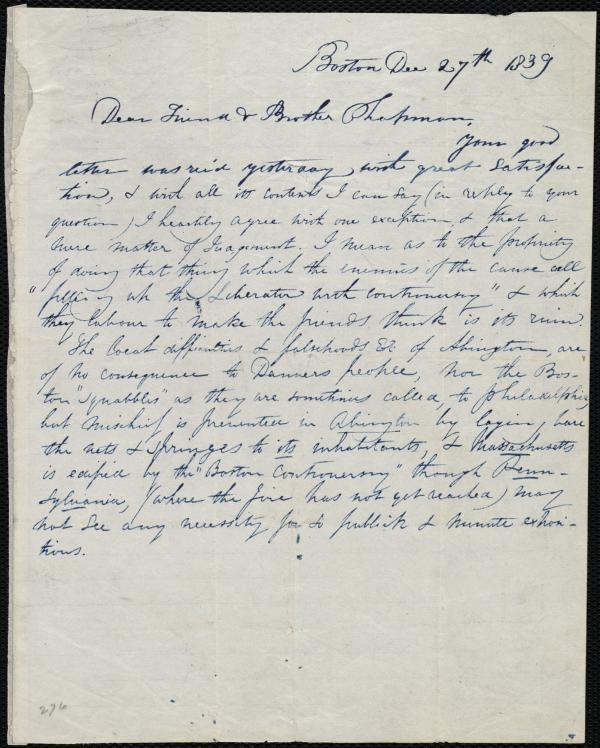 Boston Dec 27th 1839
Dear Friend & Brother Chapman,
Your good
letter was rec'd yesterday with great satisfac-
tion, & with all its contents I can say (in reply to your
question) I heartily agree with one exception & that a
mere matter of Judgement. I mean as to the propriety
of doing that thing which the enemies of the cause call
"filling up the Liberator with controversy" & which
they labour to make the friends think is its ruin.
The local difficulties & falsehoods &c of Abington, are
of no consequence to Danvers people, nor the Bos-
ton "squabbles" as they are sometimes called, to Philadelphia,
but mischief is prevented in Abington by laying bare
the nets & springes to its inhabitants, & Massachusetts
is edified by the "Boston Controversy" though Penn-
sylvania, (where the fire has not yet reached) may
not see any necessity for so publick & minute exposi-
tions.
276